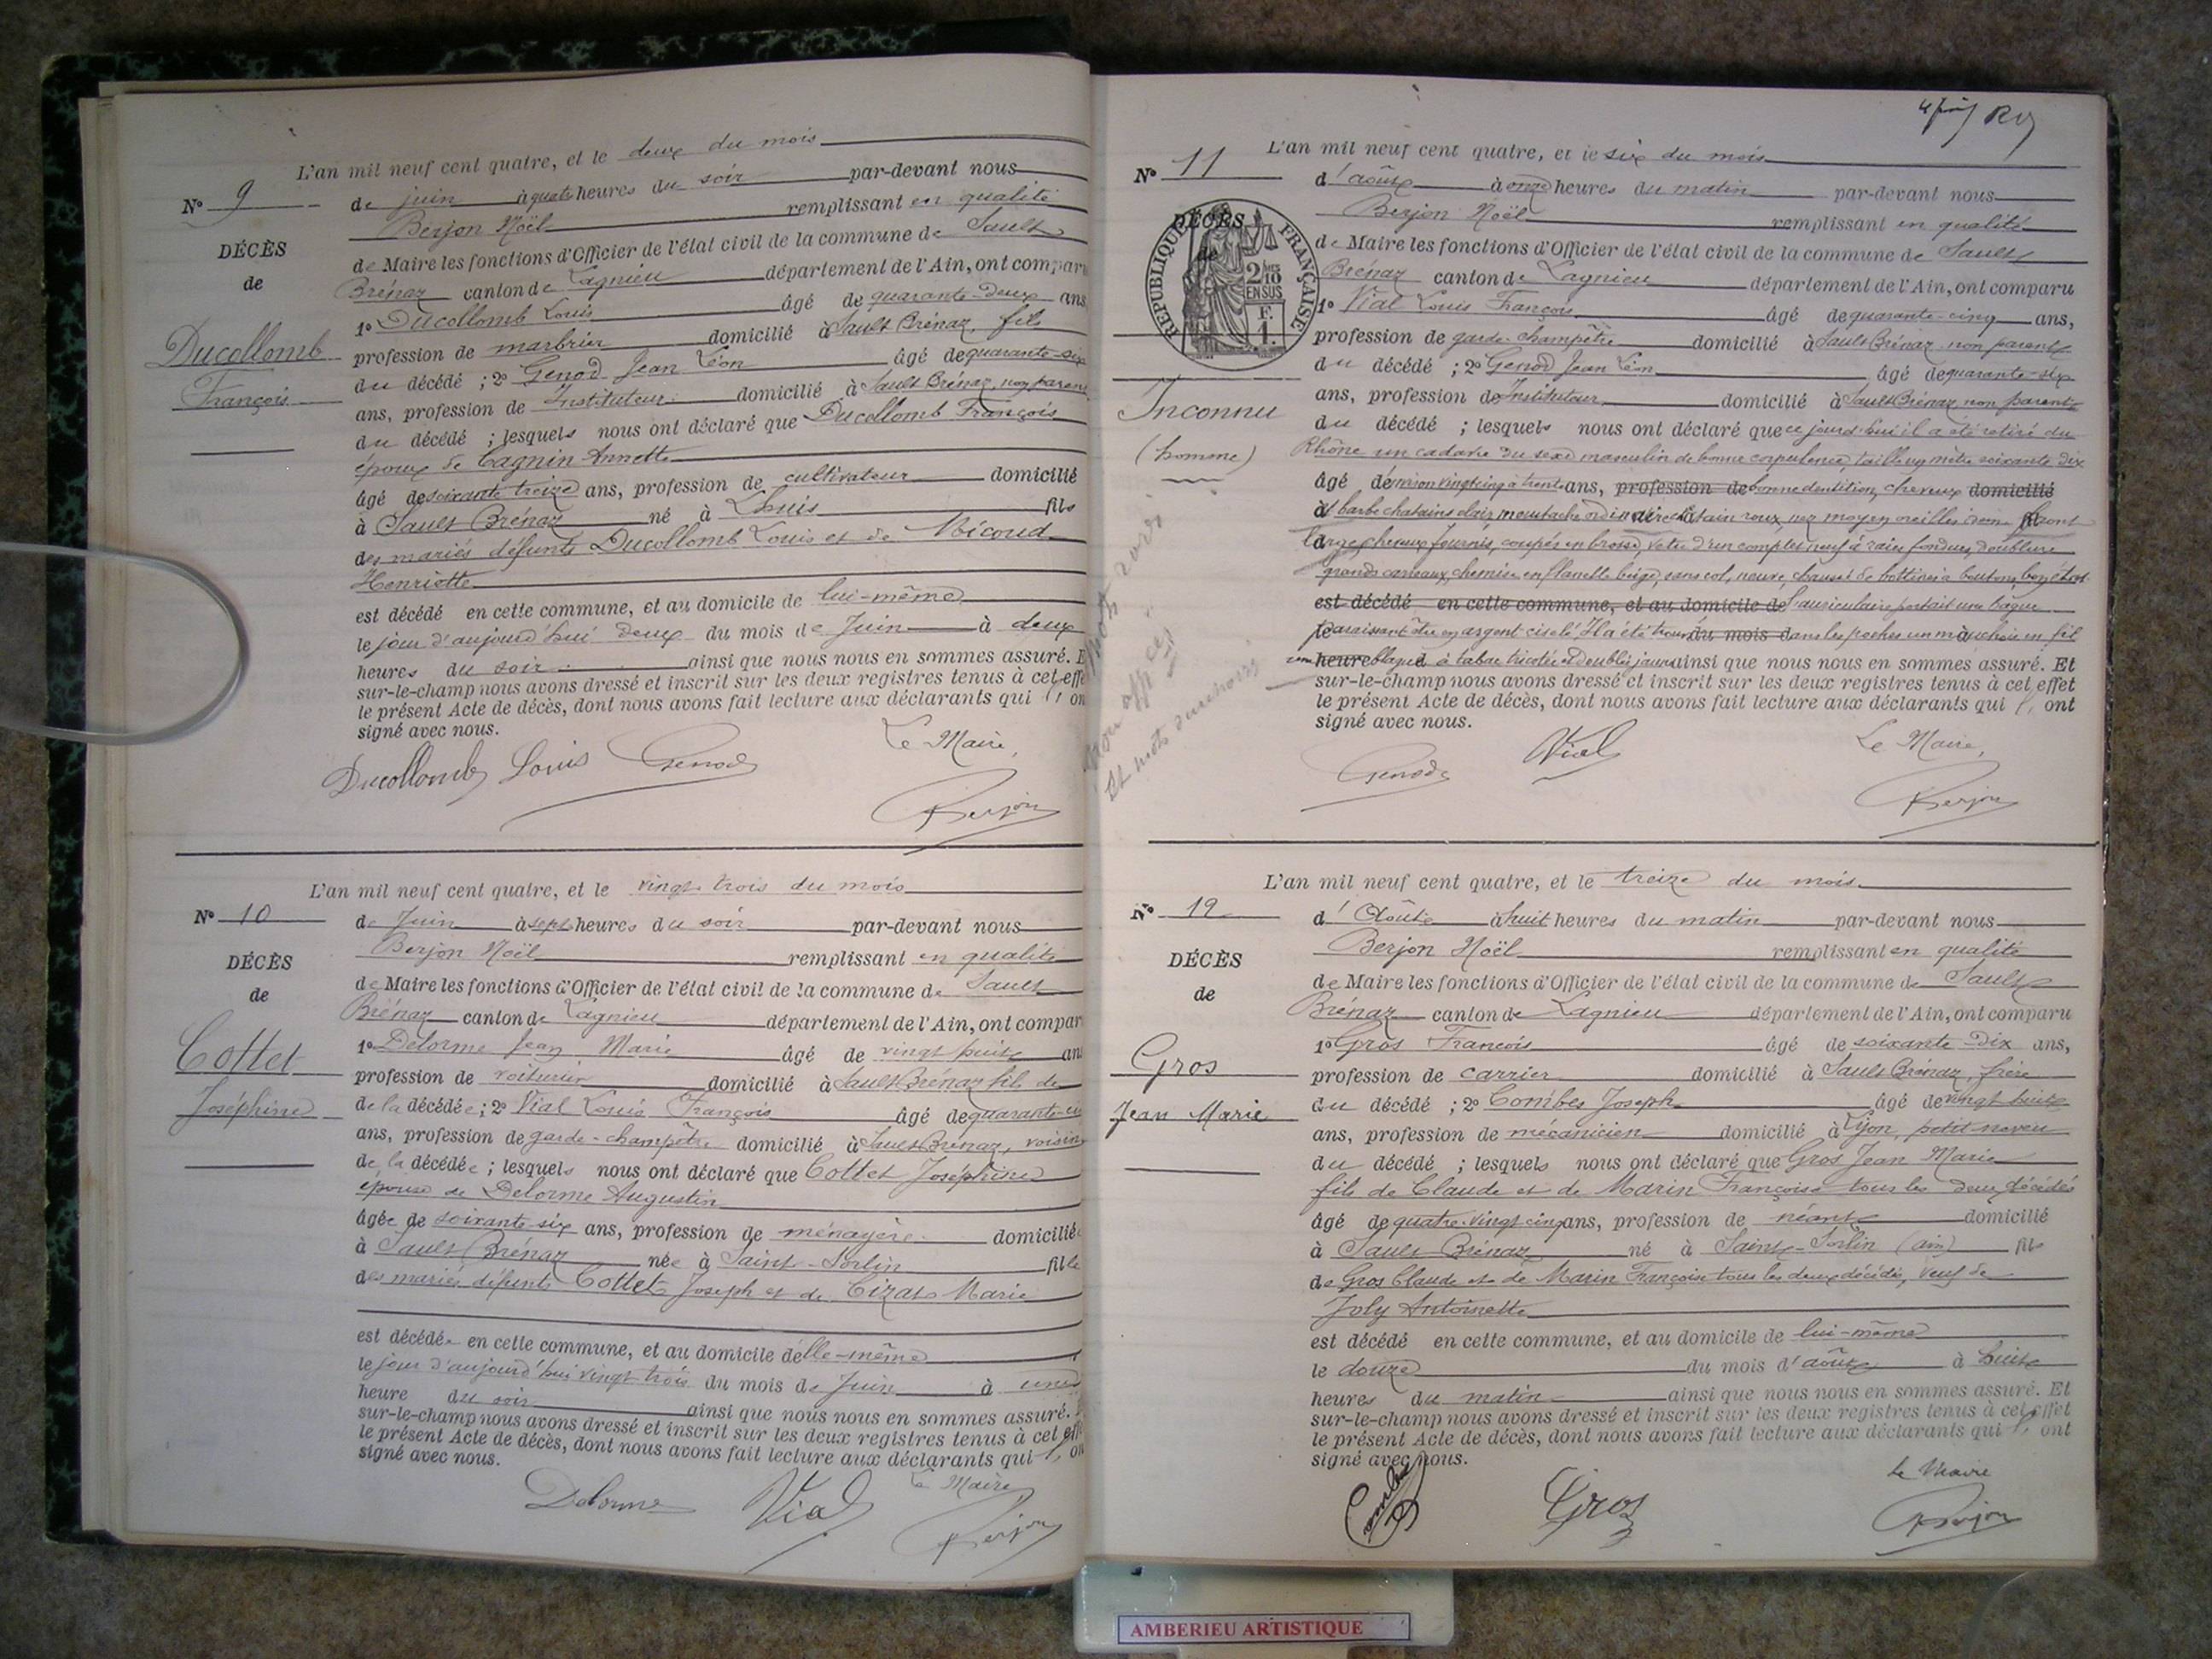 L'an mil neuf cent quatre, et le deux du mois
N° 9
de juin à quatre heures du soir par-devant nous
Berjon Noël remplissant en qualité
DÉCÈS
de Maire les fonctions d'Officier de l'état civil de la commune de Sault
de
Brénaz canton de Lagnieu département de l'Ain, ont comparu
1° Ducollomb Louis âgé de quarante-deux ans
Ducollomb
François
profession de marbrier domicilié à Sault Brénaz, fils
du décédé ; 2° Genod Jean Léon âgé de quarante-six
ans, profession de Instituteur domicilié à Sault Brénaz, non parent
du décédé ; lesquels nous ont déclaré que Ducollomb François
époux de Cagnin Annette
âgé de soixante treize ans, profession de cultivateur domicilié
à Sault Brénaz né à Lhuis fils
des mariés défunts Ducollomb Louis et de Micoud
Henriette
est décédé en cette commune, et au domicile de lui-même
le jour d'aujourd'hui deux du mois de Juin à deux
heures du soir ainsi que nous nous en sommes assuré. E
sur-le-champ nous avons dressé et inscrit sur les deux registres tenus à cet effe
le présent Acte de décès, dont nous avons fait lecture aux déclarants qui l' on
signé avec nous.
Le Maire,
Ducollomb Louis Genod
Berjon
L'an mil neuf cent quatre, et le vingt-trois du mois
N° 10
de Juin à sept heures du soir par-devant nous
Berjon Noël remplissant en qualité
DÉCÈS
de Maire les fonctions d'Officier de l'état civil de la commune de Sault
de
Brénaz canton de Lagnieu département de l'Ain, ont compar
1° Delorme Jean Marie âgé de vingt huit ans
Cottet
Joséphine
profession de voiturier domicilié à Sault Brénaz fils de
de la décédée ; 2° Vial Louis François âgé de quarante-ci
ans, profession de garde-champêtre domicilié à Sault Brénaz, voisin
de la décédée ; lesquels nous ont déclaré que Cottet Joséphine
épouse de Delorme Augustin
âgée de soixante six ans, profession de ménagère domiciliée
à Sault Brénaz née à Saint-Sorlin fille
des mariés défunts Cottet Joseph et de Cizat Marie
est décédée en cette commune, et au domicile d'elle-même
le jour d'aujourd'hui vingt trois du mois de Juin à une
heure du soir ainsi que nous nous en sommes assuré.
sur-le-champ nous avons dressé et inscrit sur les deux registres tenus à cet eff
le présent Acte de décès, dont nous avons fait lecture aux déclarants qui l' on
signé avec nous.
Le Maire
Delorme Vial
Berjon
L'an mil neuf cent quatre, et le six du mois
N° 11
d'août à onze heures du matin par-devant nous
Berjon Noël remplissant en qualité
DÉCÈS
de
RÉPUBLIQUE FRANÇAISE
2/10 EN SUS
F. 1.
de Maire les fonctions d'Officier de l'état civil de la commune de Sault
Brénaz canton de Lagnieu département de l'Ain, ont comparu
1° Vial Louis François âgé de quarante-cinq ans,
profession de garde-champêtre domicilié à Sault Brénaz non parent
du décédé ; 2° Genod Jean Léon âgé de quarante-six
Inconnu
(homme)
ans, profession de Instituteur domicilié à Sault Brénaz non parent
du décédé ; lesquels nous ont déclaré que ce jourd'hui il a été retiré du
Rhône un cadavre du sexe masculin de bonne corpulence, taille un mètre soixante dix
âgé d'environ vingt cinq à trente ans, profession de bonne dentition, cheveux domicilié
et barbe chatains clair, moustache ordinaire chatain roux, nez moyen oreilles idem front
large, cheveux fournis, coupés en brosse, vetu d'un complet neuf à raies doublure
grands carreaux, chemise en flanelle beige, sans col, neuve, chaussé de bottines à boutons bon état
est décédé en cette commune, et au domicile de l'auriculaire portait une bague
paraissant être en argent ciselé. Il a été trouvé du mois dans les poches un mouchoir en fil
une heure blague à tabac tricotée et doublée jaune ainsi que nous nous en sommes assuré. Et
sur-le-champ nous avons dressé et inscrit sur les deux registres tenus à cet effet
le présent Acte de décès, dont nous avons fait lecture aux déclarants qui l' ont
signé avec nous.
Le Maire,
Genod Vial
Berjon
L'an mil neuf cent quatre, et le treize du mois
N° 12
d'Août à huit heures du matin par-devant nous
Berjon Noël remplissant en qualité
DÉCÈS
de Maire les fonctions d'Officier de l'état civil de la commune de Sault
de
Brénaz canton de Lagnieu département de l'Ain, ont comparu
1° Gros François âgé de soixante-dix ans,
Gros
Jean Marie
profession de carrier domicilié à Sault Brénaz, frère
du décédé ; 2° Combes Joseph âgé de vingt huit
ans, profession de mécanicien domicilié à Lyon, petit neveu
du décédé ; lesquels nous ont déclaré que Gros Jean Marie
fils de Claude et de Marin Françoise tous les deux décédés
âgé de quatre-vingt cinq ans, profession de néant domicilié
à Sault Brénaz né à Saint-Sorlin (ain) fils
de Gros Claude et de Marin Françoise tous les deux décédés, veuf de
Joly Antoinette
est décédé en cette commune, et au domicile de lui-même
le douze du mois d'août à huit
heures du matin ainsi que nous nous en sommes assuré. Et
sur-le-champ nous avons dressé et inscrit sur les deux registres tenus à cet effet
le présent Acte de décès, dont nous avons fait lecture aux déclarants qui l' ont
signé avec nous.
Le Maire
Combes Gros
Berjon
AMBERIEU ARTISTIQUE